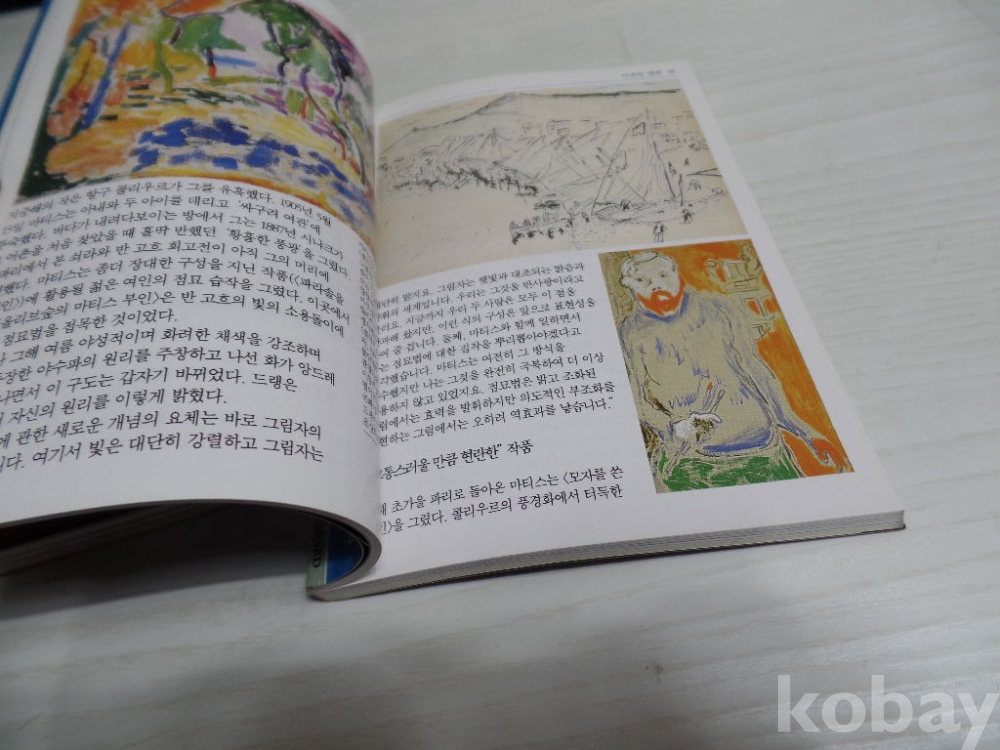 지중해의 작은 항구 콜리우르가 그를 유혹했다. 1905년 5월
15일 마티스는 아내와 두 아이를 데리고 '싸구려 여관'에
투숙했다. 바다가 내려다보이는 방에서 그는 1887년 시냐크가
어촌을 처음 찾았을 때 홀딱 반했던 '황홀한 풍광'을 그렸다.
파리에서 본 쇠라와 반 고흐 회고전이 아직 그의 머리에
했다. 마티스는 좀더 장대한 구성을 지닌 작품(《파라솔을
인》)에 활용될 젊은 여인의 점묘 습작을 그렸다. 이곳에서
올리브숲의 마티스 부인〉은 반 고흐의 빛의 소용돌이에
점묘법을 접목한 것이었다.
그해 여름 야성적이며 화려한 채색을 강조하며
등장한 야수파의 원리를 주창하고 나선 화가 앙드레
나면서 이 구도는 갑자기 바뀌었다. 드랭은
자신의 원리를 이렇게 밝혔다.
에 관한 새로운 개념의 요체는 바로 그림자의
다. 여기서 빛은 대단히 강렬하고 그림자는
밝지요. 그림자는 햇빛과 대조되는 밝음과
광휘의 세계입니다. 우리는 그것을 반사광이라고
러요. 지금까지 우리 두 사람은 모두 이 점을
과해 왔지만, 이런 식의 구성은 앞으로 표현성을
여 줄 겁니다. 둘째, 마티스와 함께 일하면서
는 점묘법에 대한 집착을 뿌리뽑아야겠다고
각했습니다. 마티스는 여전히 그 방식을
수했지만 나는 그것을 완전히 극복하여 더 이상
용하지 않고 있었지요. 점묘법은 밝고 조화된
림에서는 효력을 발휘하지만 의도적인 부조화를
현하는 그림에서는 오히려 역효과를 낳습니다."
고통스러울 만큼 현란한" 작품
해 초가을 파리로 돌아온 마티스는 〈모자를 쓴
인〉을 그렸다. 콜리우르의 풍경화에서 터득한
kobay